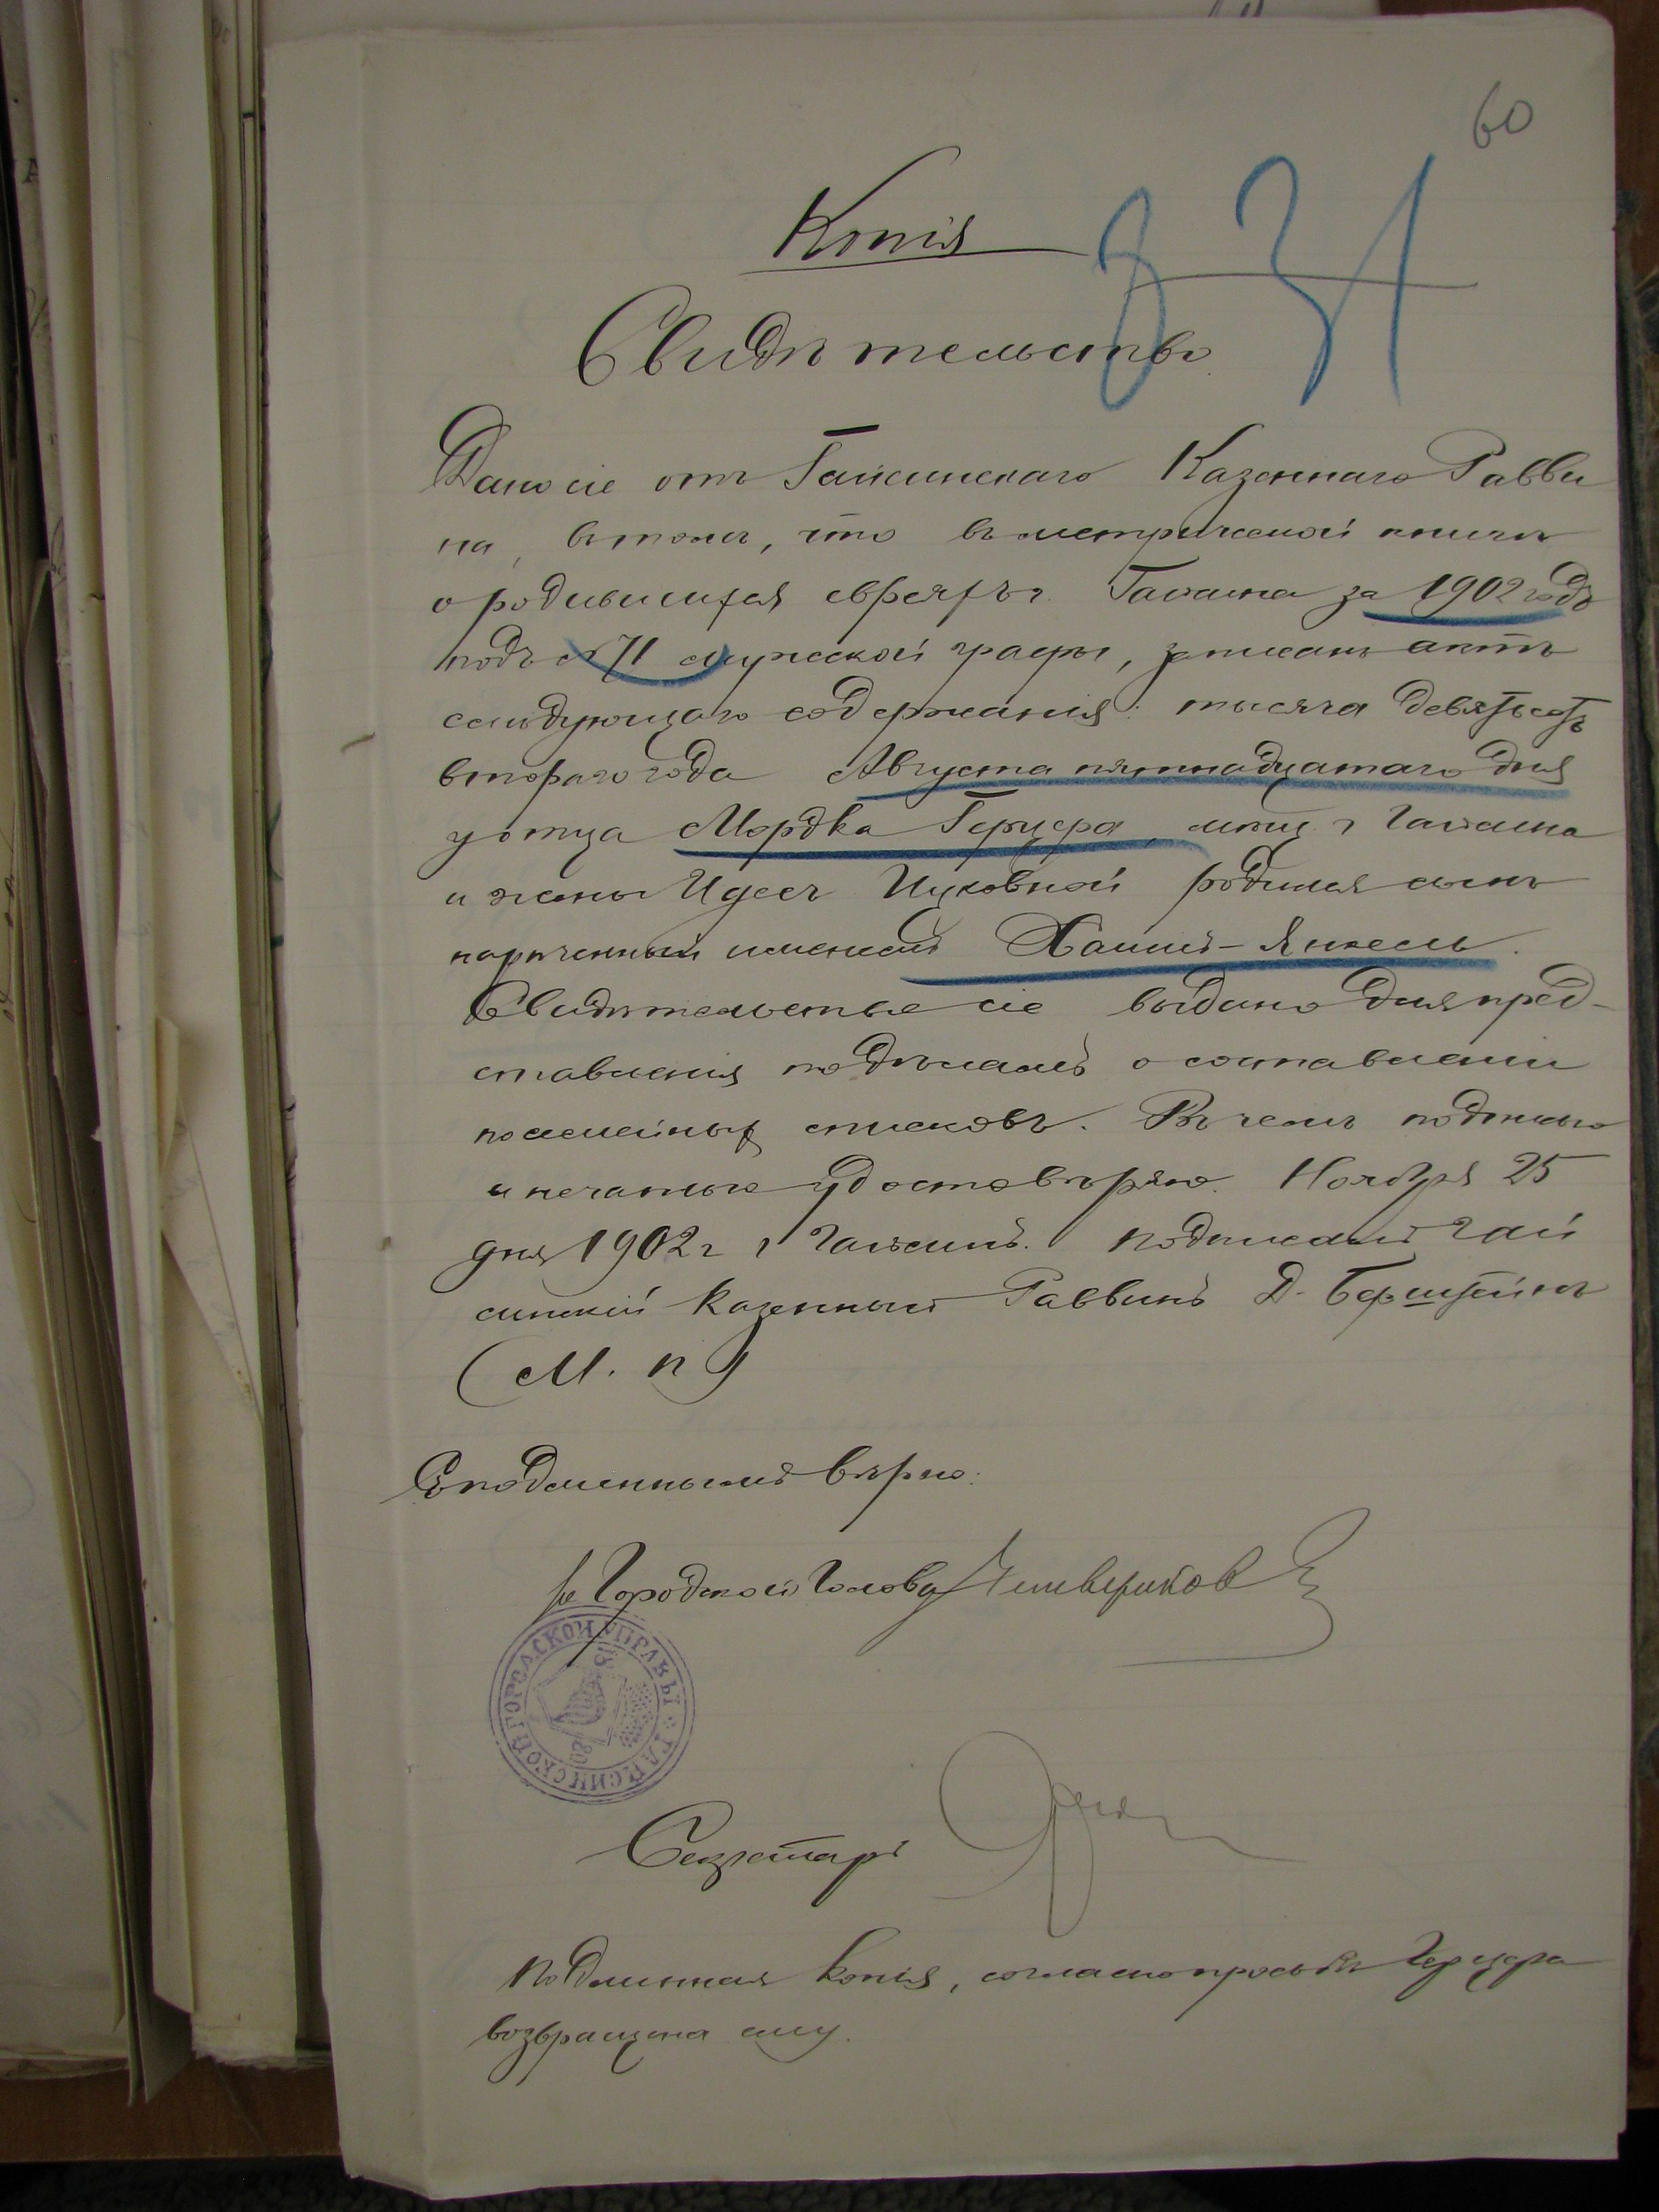 60
Копія
331
Свидѣтельство.
Дано сіе отъ Гайсинскаго Казеннаго Равви
на, въ томъ, что въ метрической книгѣ
о родившихся евреяхъ г. Гайсина за 1902 годъ
подъ № 71 мужеской графы, записанъ актъ
слѣдующаго содержанія: тысяча девятьсотъ
втораго года Августа пятнадцатаго дня
у отца Мордка Герцера, мѣщ. г. Гайсина
и жены Идесъ Ицковной родился сынъ
нареченный именемъ Хаимъ-Янкель.
Свидѣтельство сіе выдано для пред-
ставленія по дѣламъ о составленіи
посемейныхъ списковъ. Въ чемъ подписью
и печатью удостовѣряю. Ноября 25
дня 1902 г. г. Гайсинъ. Подписалъ Гай
синскій Казенный Раввинъ Д. Берштейнъ
(М. П.)
Съ подлиннымъ вѣрно:
Городской Голова
ГАЙСИНСКОЙ ГОРОДСКОЙ УПРАВЫ
Секретарь
Подлинная копія, согласно просьбѣ Герцера
возвращена ему.